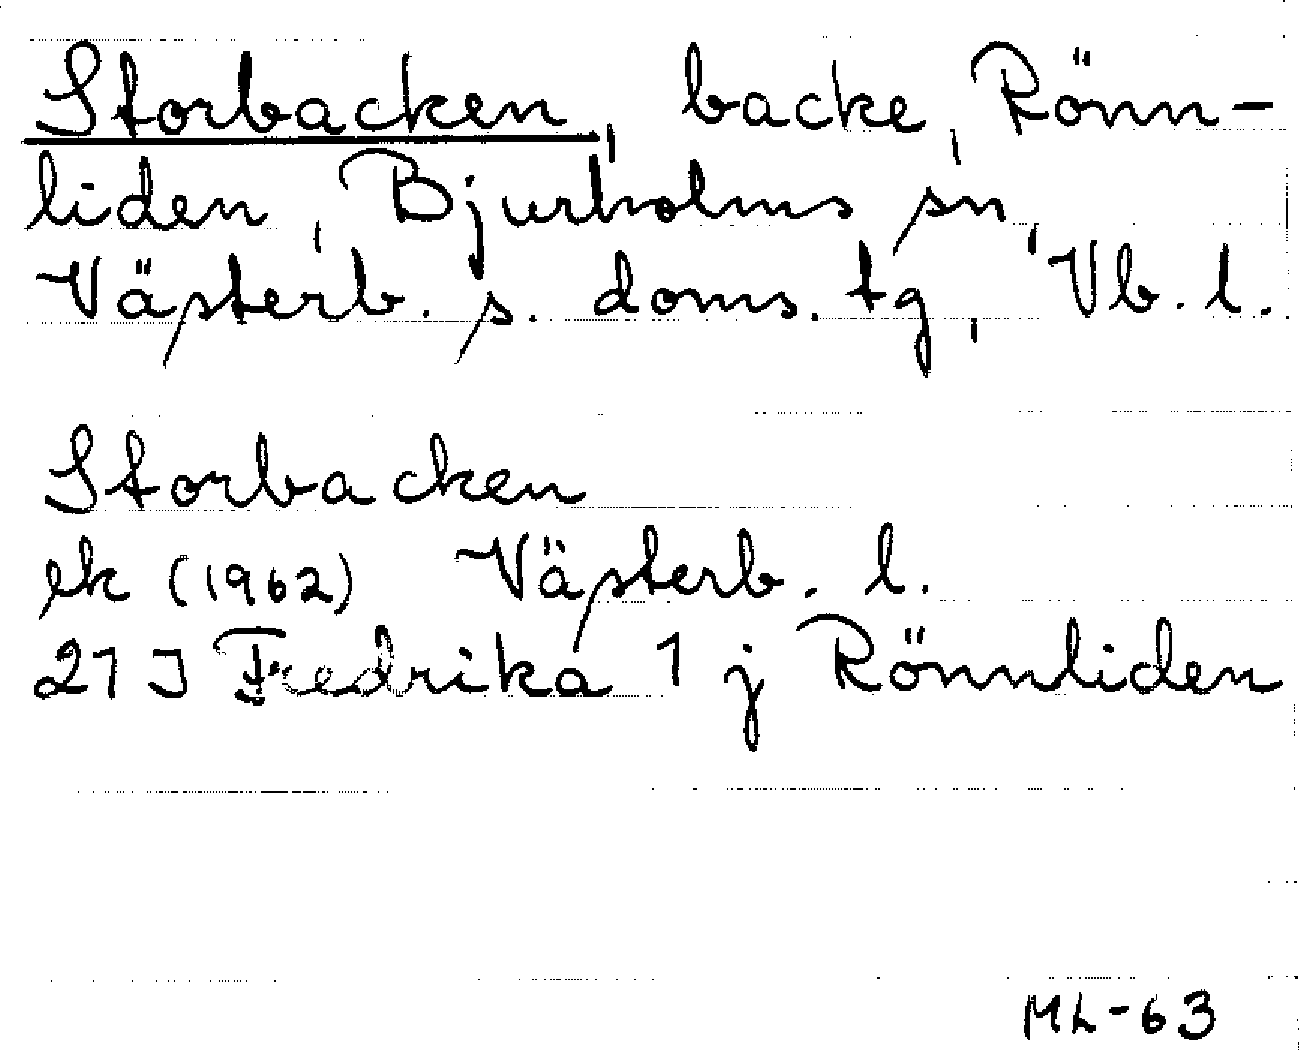 Storbacken, backe, Rönn-
liden, Bjurholms sn,
Västerb. s. doms. tg, Vb. l.
Storbacken
ek (1962) Västerb. l.
21 J Fredrika 1 j Rönnliden
ML-63